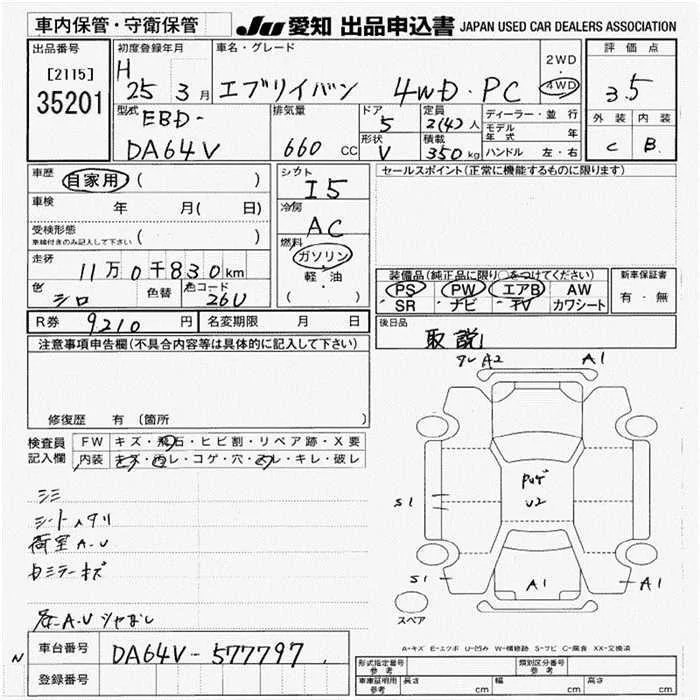 車内保管・守衛保管
JU 愛知 出品申込書 JAPAN USED CAR DEALERS ASSOCIATION
出品番号 初度登録年月 車名・グレード 2WD・4WD 評価点
[2115]
35201
H 25 3月 エブリイバン 4WD・PC 3.5
型式 排気量 ドア 定員 ディーラー・並行 外装 内装
EBD- 5 2(4)人 モデル年式 年
形状 積載
DA64V 660cc V 350kg ハンドル 左・右 C B
車歴 自家用 ( ) シフト セールスポイント(正常に機能するものに限ります)
I5
車検 年 月( 日) 冷房
AC
受検形態 ( )
車検付きのみ記入して下さい
燃料
ガソリン
軽・油
( ・ )
走行 11万0千830km 装備品(純正品に限り○をつけてください) 新車保証書
PS PW エアB AW 有・無
SR ナビ TV カワシート
色 シロ 色替 色コード 26U
R券 9210円 名変期限 月 日 後日品
取説
注意事項申告欄(不具合内容等は具体的に記入して下さい)
A2 A1
修復歴 有 (箇所 )
検査員 FW キズ・飛石・ヒビ割・リペア跡・X要
記入欄 内装 キズ・凹レ・コゲ・穴・スレ・キレ・破レ
U2
S1
シミ
荷室A・U
内ミラーキズ
S1 A1 A1
スペア
A=キズ E=エクボ U=凹み W=補修跡 S=サビ C=腐食 XX=交換済
車台番号 DA64V-577797
N
登録番号
形式指定番号 参考 類別区分番号 参考
車庫証明用 参考 長さ cm 幅 cm 高さ cm